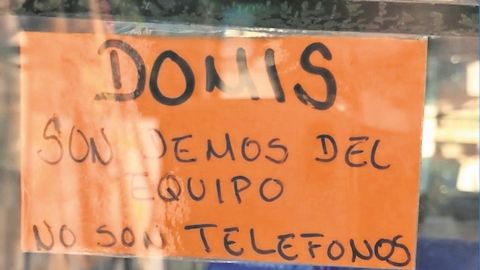 DOMIS
SON DEMOS DEL
EQUIPO
NO SON TELEFONOS